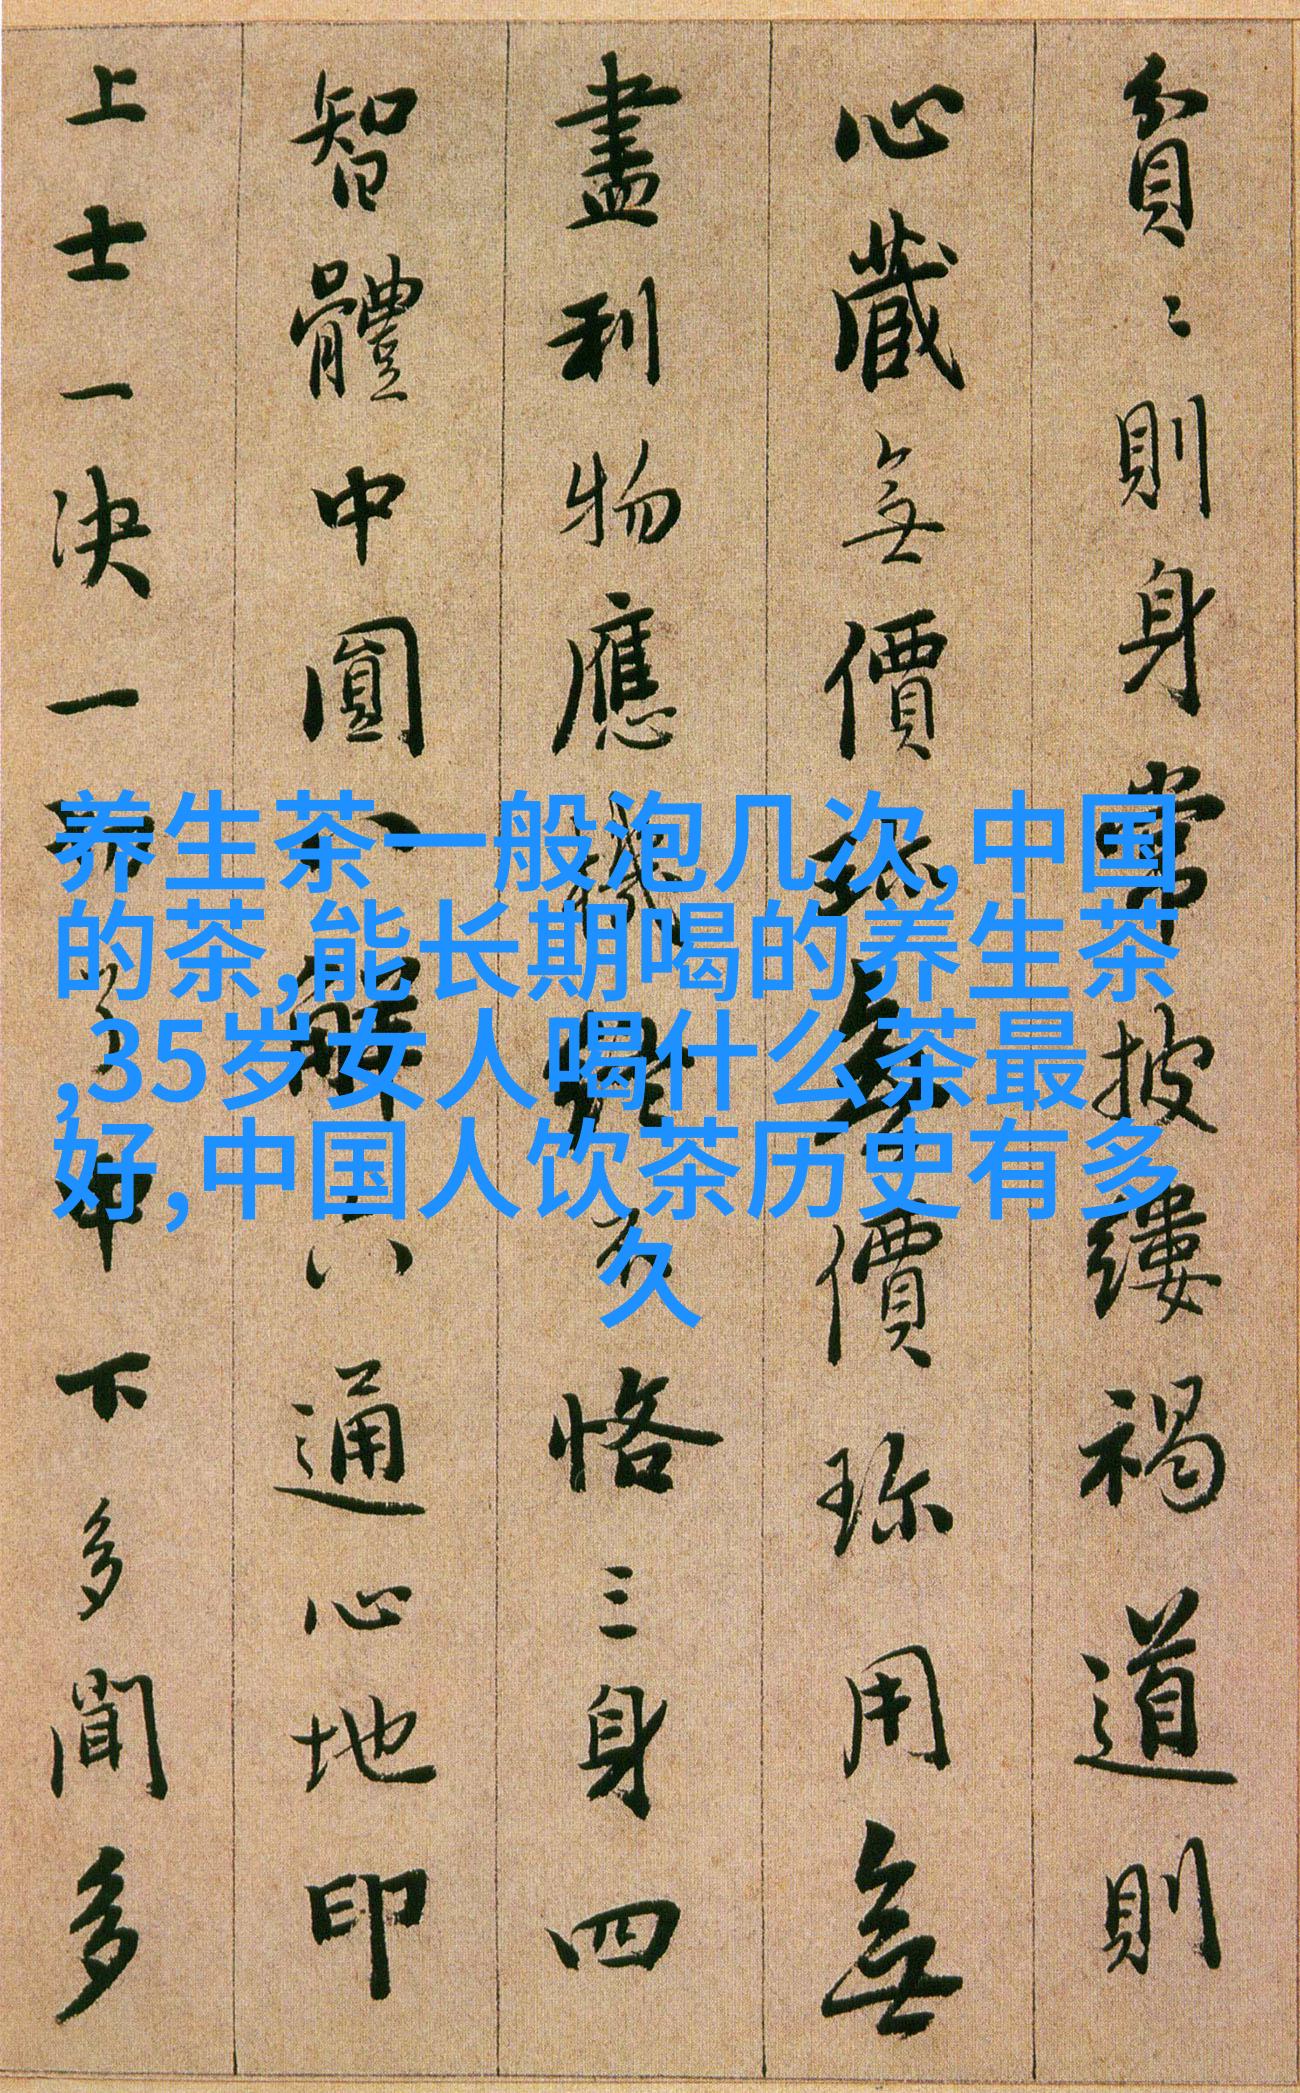 貧〻則身常披縷褐道則
心藏無價珎無價珎用無
盡利物應機不恪三身四
智體中圓八解六通心地印
上士一決一了中下多聞多
养生茶一般泡几次,中国
的茶,能长期喝的养生茶
,35岁女人喝什么茶最
好,中国人饮茶历史有多
久